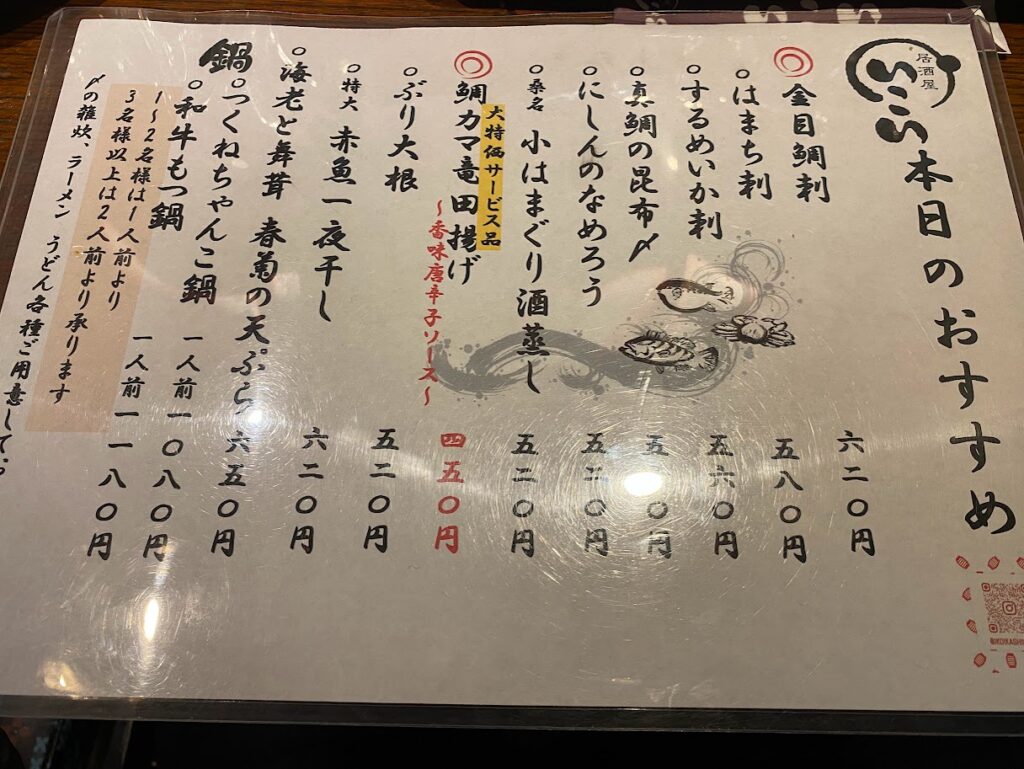 居酒屋
いこい
本日のおすすめ
◎金目鯛刺 六二〇円
○はまち刺 五八〇円
○するめいか刺 五六〇円
○真鯛の昆布〆 五 〇円
○にしんのなめろう 五二〇円
○桑名 小はまぐり酒蒸し 五二〇円
大特価サービス品
◎鯛カマ竜田揚げ 四五〇円
～香味唐辛子ソース～
○ぶり大根 五二〇円
○特大 赤魚一夜干し 六二〇円
○海老と舞茸 春菊の天ぷら 六五〇円
鍋
○つくねちゃんこ鍋 一人前 一〇八〇円
○和牛もつ鍋 一人前 一一八〇円
1～2名様は1人前より
3名様以上は2人前より承ります
〆の雑炊、ラーメン うどん各種ご用意して